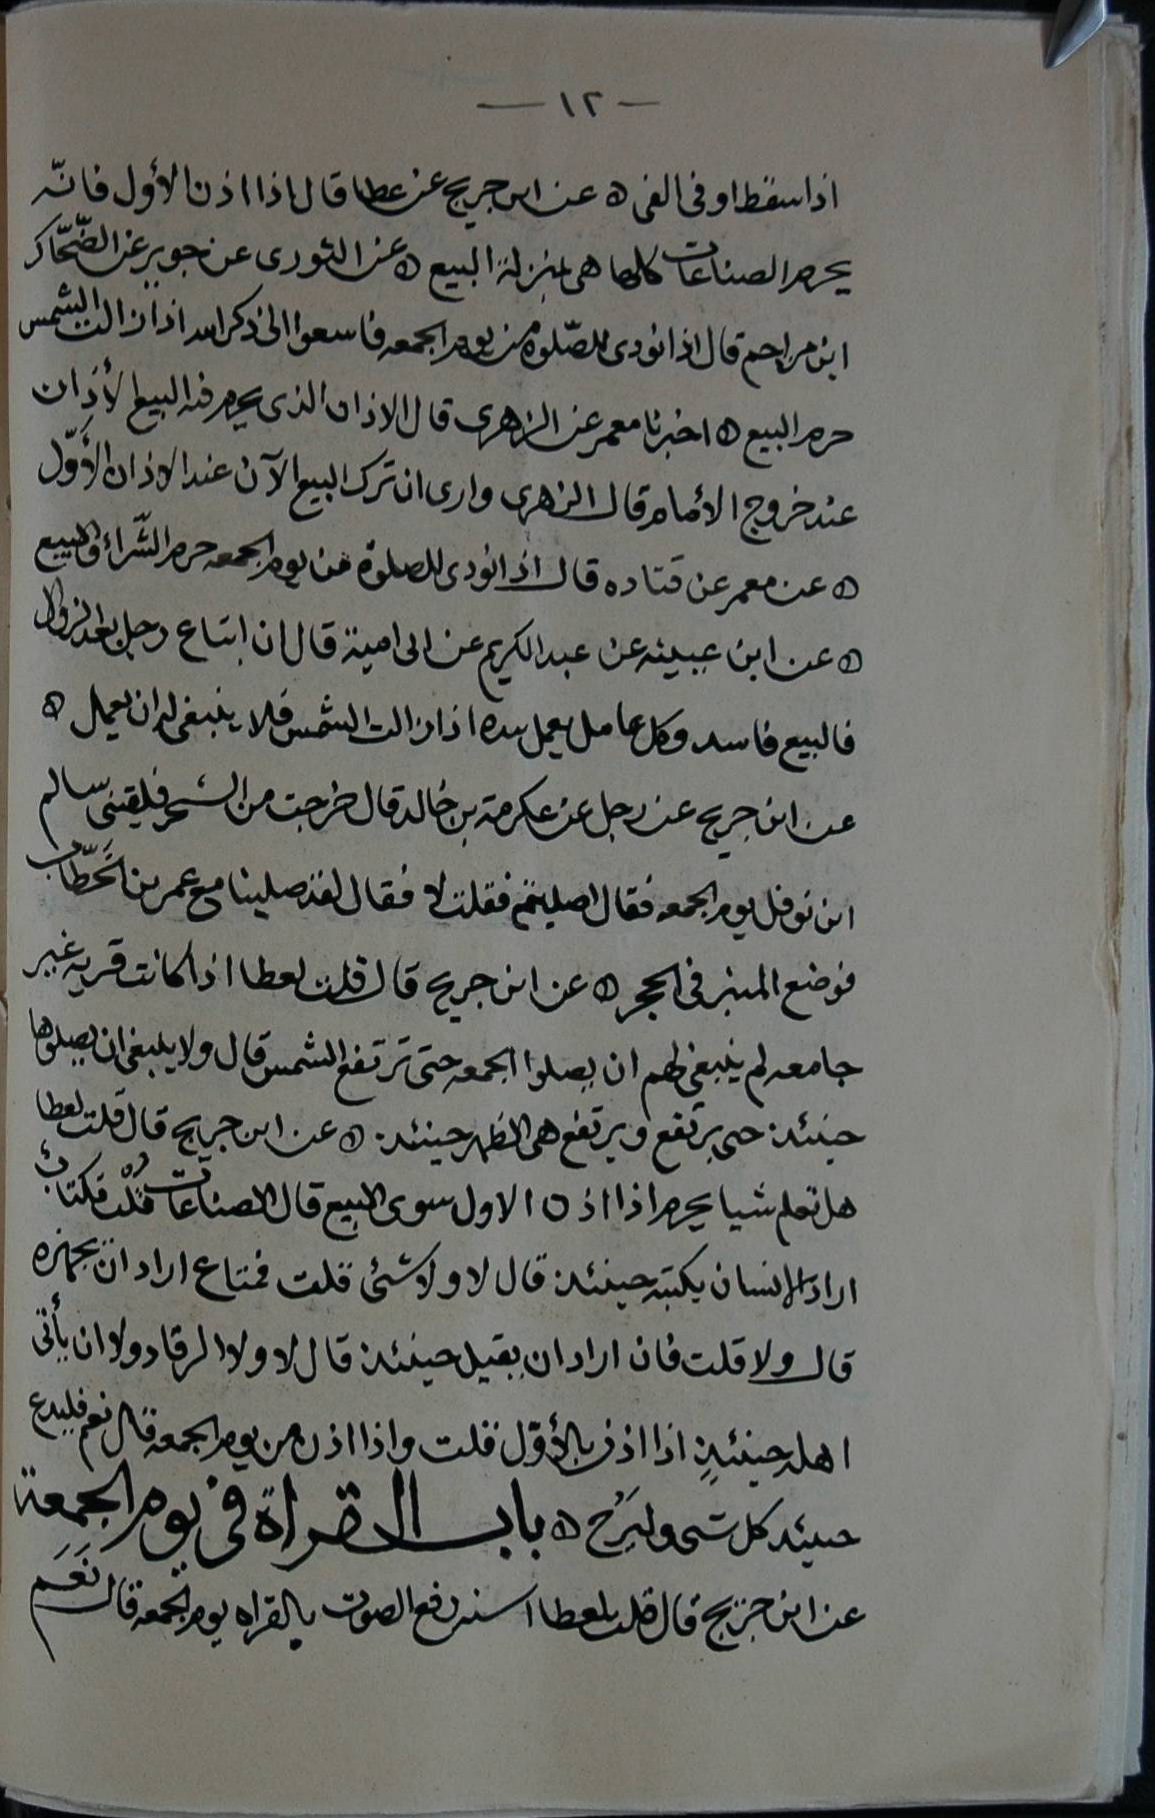 — ١٢ —
اذا سقط او فى الفى ه عن ابن جريج عن عطا قال اذا اذن الأول فانّه
يحرم الصناعات كلها هى بمنزلة البيع ه عن الثورى عن جويبر عن الضّحّاك
ابن مزاحم قال اذا نودى للصّلوة من يوم الجمعه فاسعوا الى ذكر الله اذا زالت الشمس
حرم البيع ه اخبرنا معمر عن الزهرى قال الاذان الذى يحرم فيه البيع الأذان
عند خروج الأمام قال الزهرى وارى ان ترك البيع الآن عند الاذان الأوّل
ه عن معمر عن قتاده قال اذا نودى للصلوة من يوم الجمعه حرم الشّراء والبيع
ه عن ابن عيينه عن عبد الكريم عن ابى امية قال ان ابتاع رجل بعد الزوال
فالبيع فاسد وكل عامل يعمل بيده اذا زالت الشمس فلا ينبغى له ان يعمل ه
عن ابن جريج عن رجل عن عكرمة بن خالد قال خرجت من السحر فلقينى سالم
ابن نوفل يوم الجمعه فقال اصليتم فقلت لا فقال لقد صلينا مع عمر بن الخَطّاب
فوضع المنبر فى الحجر ه عن ابن جريج قال قلت لعطا اذا كانت قريه غير
جامعه لم ينبغى لهم ان يصلوا الجمعه حتى ترتفع الشمس قال ولا ينبغى ان يصلوها
حينئذ حتى يرتفع ويرتفع هى الظهر حينئذ ه عن ابن جريج قال قلت لعطا
هل تعلم شيا يحرم اذا اذن الاول سوى البيع قال الصناعات قلت فكتابٌ
اراد الإنسان يكتبه حينئذ قال لا ولا شئى قلت فمتاع اراد ان يجهزه
قال ولا قلت فان اراد ان يقيل حينئذ قال لا ولا الرقاد ولا ان يأتى
اهله حينئذٍ اذا اذن بالأوّل قلت واذا اذن من يوم الجمعه قال نعم فليدع
حينئذ كل شى وليَرُح ه باب القراة فى يوم الجمعة
عن ابن جريج قال قلت لعطا اسنه رفع الصوت بالقراه يوم الجمعه قال نَعَم